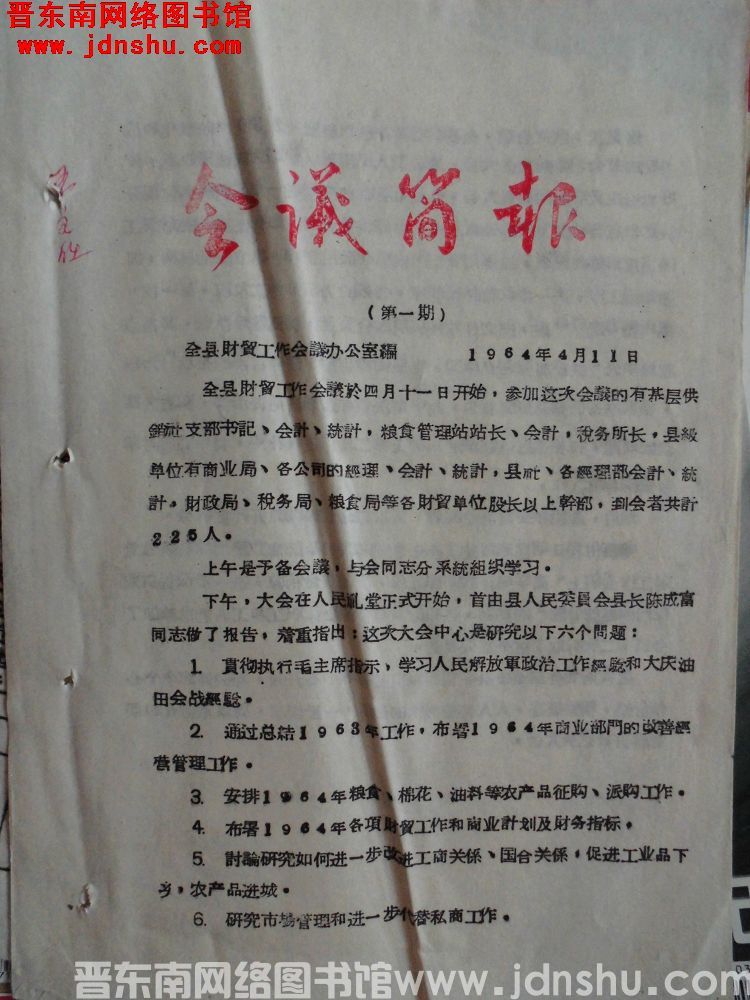 晋东南网络图书馆
www.jdnshu.com
会議简報
（第一期）
全县財貿工作会議办公室編 1964年4月11日
全县財貿工作会議於四月十一日开始，参加这次会議的有基层供
銷社支部书記、会計、統計，粮食管理站站长、会計，税务所长，县級
单位有商业局、各公司的經理、会計、統計，县社、各經理部会計、統
計，財政局、税务局、粮食局等各財貿单位股长以上幹部，到会者共計
225人。
上午是予备会議，与会同志分系統組织学习。
下午，大会在人民礼堂正式开始，首由县人民委員会县长陈成富
同志做了报告，着重指出：这次大会中心是研究以下六个問題：
1. 貫彻执行毛主席指示、学习人民解放軍政治工作經驗和大庆油
田会战經驗。
2. 通过总結1963年工作，布署1964年商业部門的改善經
营管理工作。
3. 安排1964年粮食、棉花、油料等农产品征购、派购工作。
4. 布署1964年各項財貿工作和商业計划及財务指标。
5. 討論研究如何进一步改进工商关係、国合关係，促进工业品下
乡，农产品进城。
6. 研究市場管理和进一步代替私商工作。
晋东南网络图书馆www.jdnshu.com